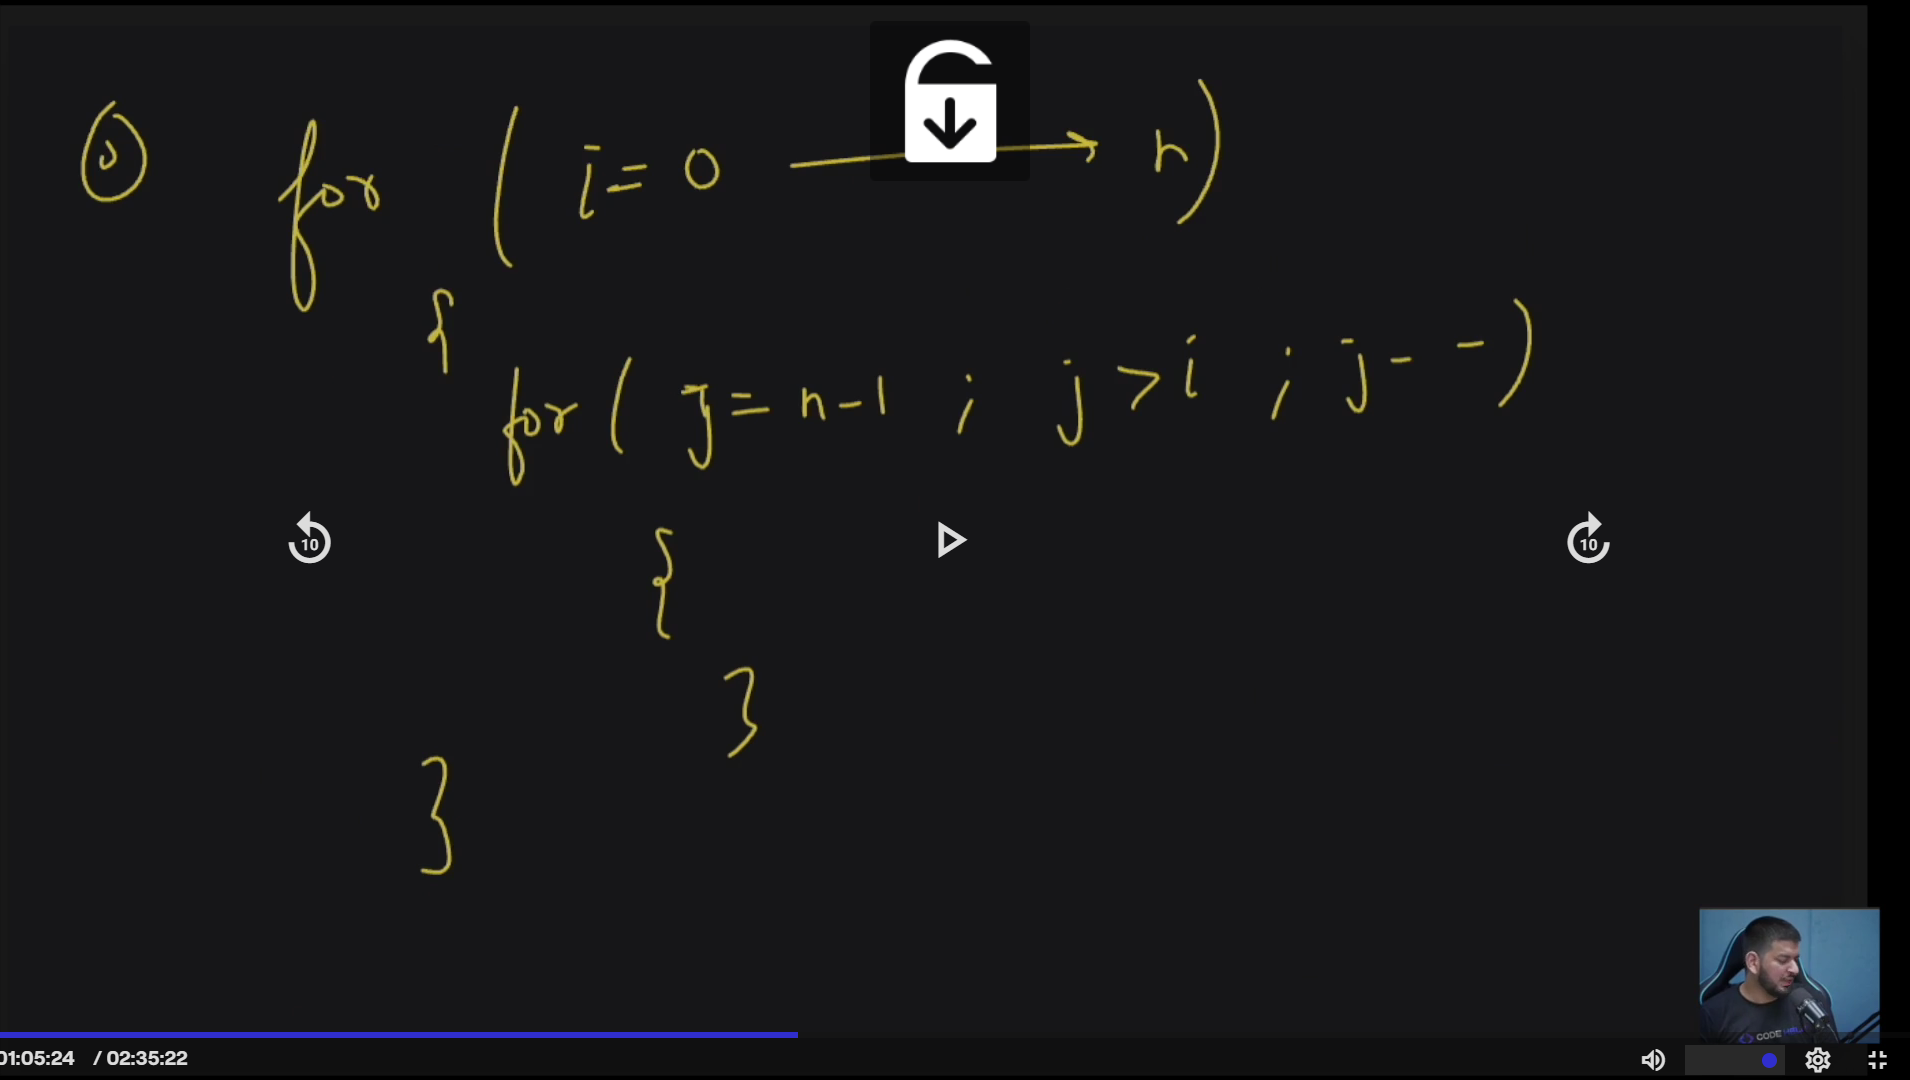 for ( i = 0 → n)
{
for ( j = n-1 ; j > i ; j - - )
10
10
{
}
}
CODE
01:05:24 / 02:35:22